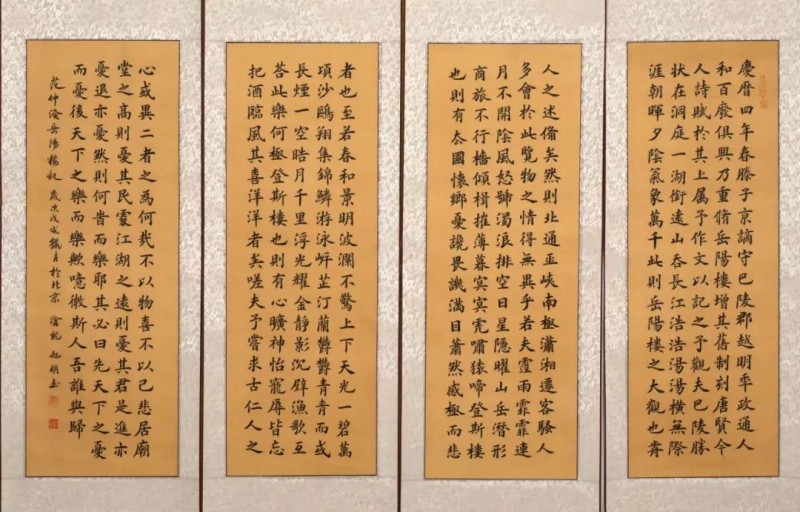 慶曆四年春滕子京謫守巴陵郡越明年政通人
和百廢俱興乃重脩岳陽樓增其舊制刻唐賢今
人詩賦於其上屬予作文以記之予觀夫巴陵勝
狀在洞庭一湖銜遠山吞長江浩浩湯湯橫無際
涯朝暉夕陰氣象萬千此則岳陽樓之大觀也前
人之述備矣然則北通巫峽南極瀟湘遷客騷人
多會於此覽物之情得無異乎若夫霪雨霏霏連
月不開陰風怒號濁浪排空日星隱曜山岳潛形
商旅不行檣傾楫摧薄暮冥冥虎嘯猿啼登斯樓
也則有去國懷鄉憂讒畏譏滿目蕭然感極而悲
者也至若春和景明波瀾不驚上下天光一碧萬
頃沙鷗翔集錦鱗游泳岸芷汀蘭鬱鬱青青而或
長煙一空皓月千里浮光耀金靜影沉璧漁歌互
答此樂何極登斯樓也則有心曠神怡寵辱皆忘
把酒臨風其喜洋洋者矣嗟夫予嘗求古仁人之
心或異二者之為何哉不以物喜不以己悲居廟
堂之高則憂其民處江湖之遠則憂其君是進亦
憂退亦憂然則何時而樂耶其必曰先天下之憂
而憂後天下之樂而樂歟噫微斯人吾誰與歸
范仲淹岳陽樓記 歲次戊戌 月於北京